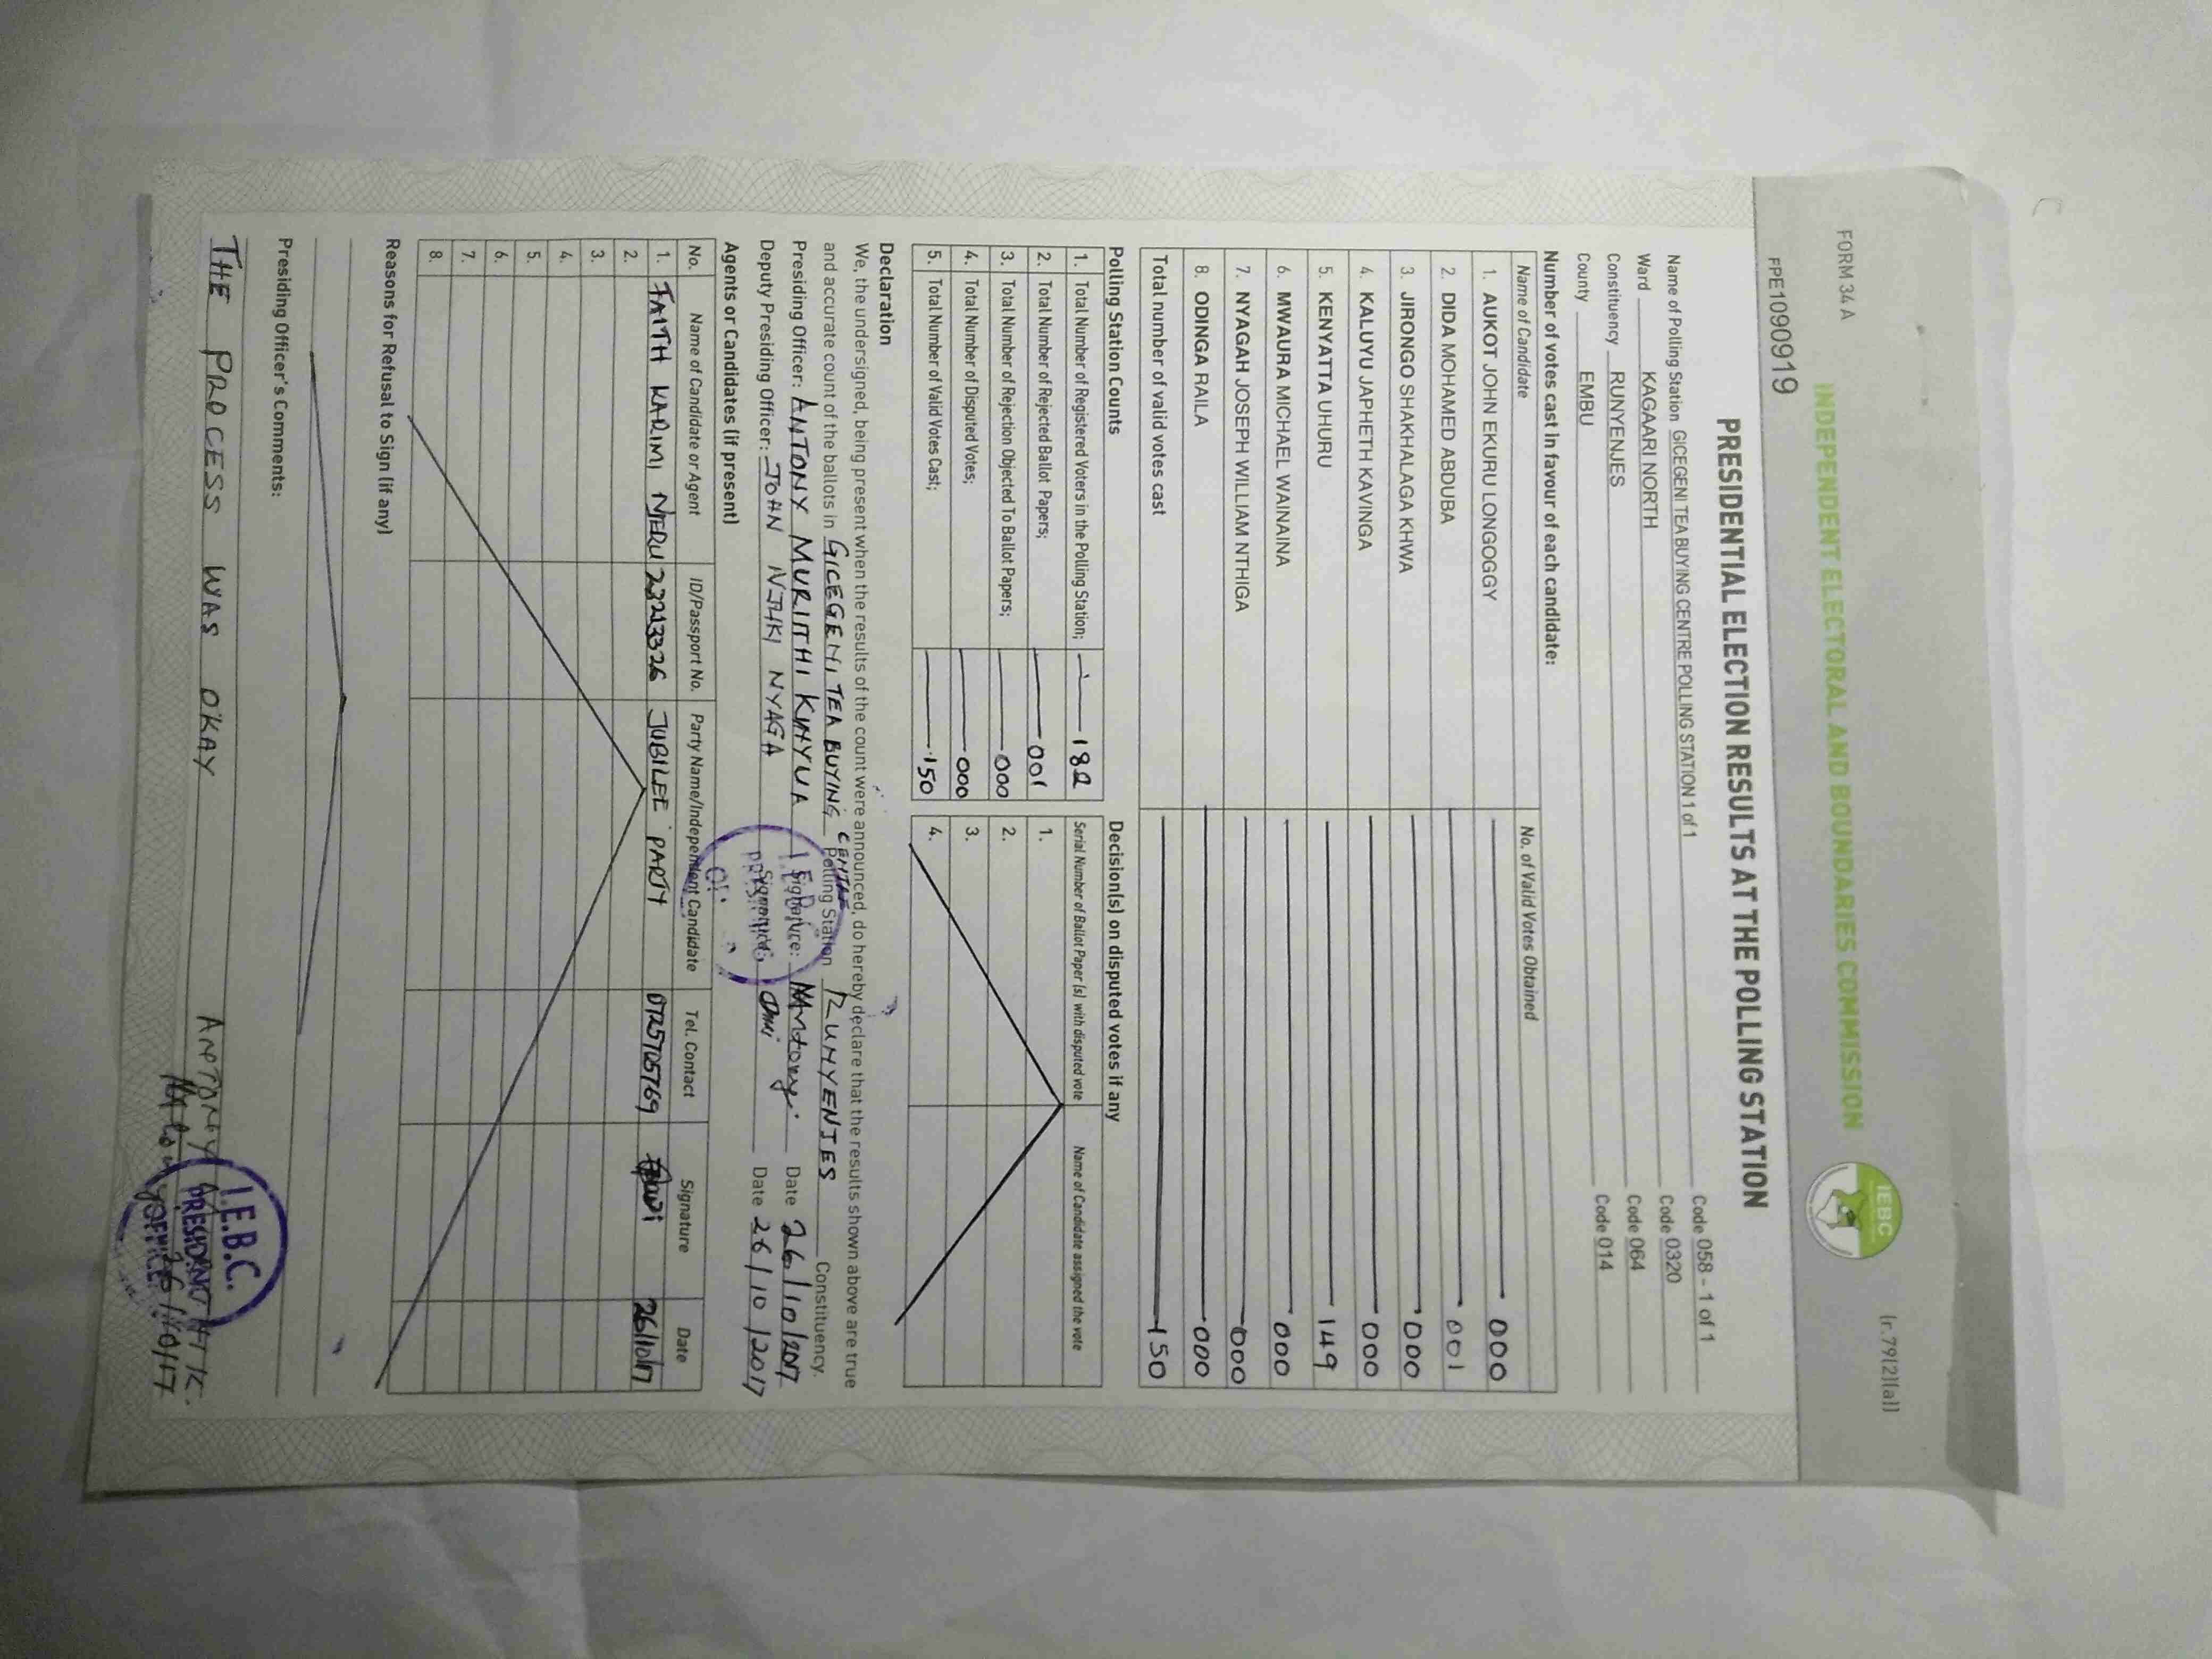 FORM 34 A
(r.79(2)(a))
INDEPENDENT ELECTORAL AND BOUNDARIES COMMISSION
IEBC
FPE1090919
PRESIDENTIAL ELECTION RESULTS AT THE POLLING STATION
Name of Polling Station GICEGENI TEA BUYING CENTRE POLLING STATION 1 of 1 Code 058 - 1 of 1
Ward KAGAARI NORTH Code 0320
Constituency RUNYENJES Code 064
County EMBU Code 014
Number of votes cast in favour of each candidate:
Name of Candidate No. of Valid Votes Obtained
1. AUKOT JOHN EKURU LONGOGGY 000
2. DIDA MOHAMED ABDUBA 001
3. JIRONGO SHAKHALAGA KHWA 000
4. KALUYU JAPHETH KAVINGA 000
5. KENYATTA UHURU 149
6. MWAURA MICHAEL WAINAINA 000
7. NYAGAH JOSEPH WILLIAM NTHIGA 000
8. ODINGA RAILA 000
Total number of valid votes cast 150
Polling Station Counts
1. Total Number of Registered Voters in the Polling Station; 182
2. Total Number of Rejected Ballot Papers; 001
3. Total Number of Rejection Objected To Ballot Papers; 000
4. Total Number of Disputed Votes; 000
5. Total Number of Valid Votes Cast; 150
Decision(s) on disputed votes if any
Serial Number of Ballot Paper (s) with disputed vote Name of Candidate assigned the vote
1.
2.
3.
4.
Declaration
We, the undersigned, being present when the results of the count were announced, do hereby declare that the results shown above are true
and accurate count of the ballots in GICEGENI TEA BUYING CENTRE Polling Station RUNYENJES Constituency.
Presiding Officer: ANTONY MURIITHI KINYUA Signature: Date 26/10/2017
Deputy Presiding Officer: JOHN NJIKI NYAGA Signature: Date 26/10/2017
Agents or Candidates (if present)
No. Name of Candidate or Agent ID/Passport No. Party Name/Independent Candidate Tel. Contact Signature Date
1. FAITH KARIMI NJERU 23213326 JUBILEE PARTY 0725705769 26/10/17
2.
3.
4.
5.
6.
7.
8.
Reasons for Refusal to Sign (if any)
Presiding Officer's Comments:
THE PROCESS WAS O'KAY ANTONY
I.E.B.C.
PRESIDING
OFFICER